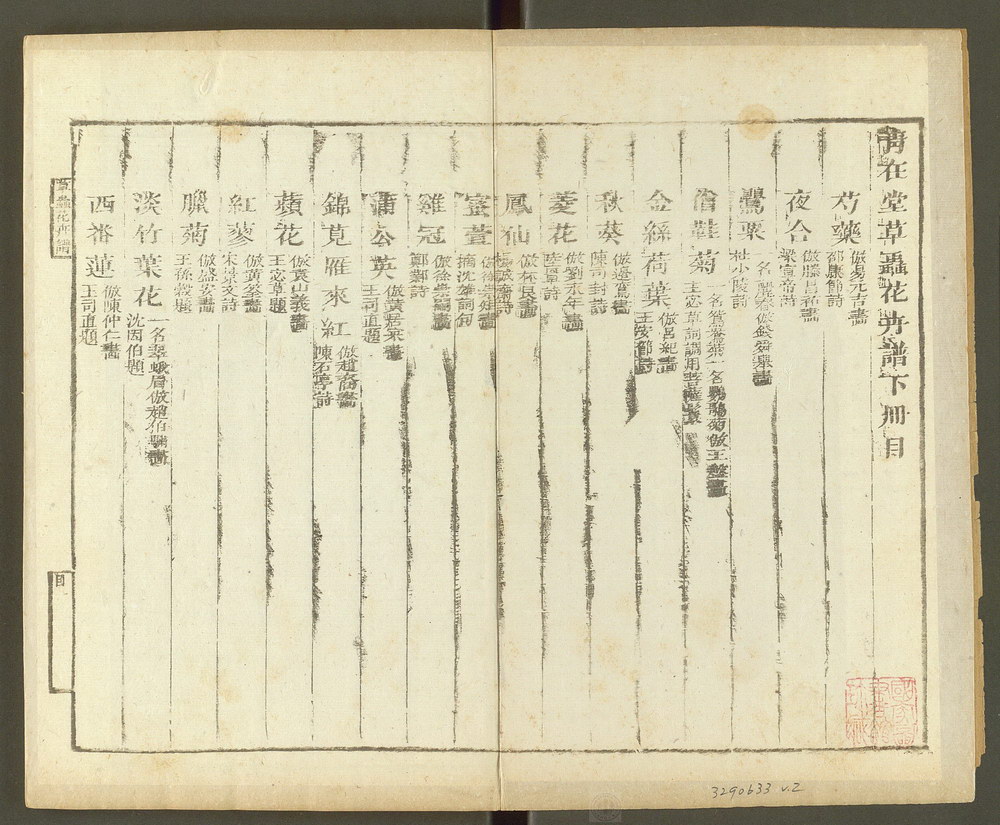 靑在堂草蟲花卉譜下冊目
芍藥 倣易元吉畫 邵康節詩
夜合 倣滕昌祐畫 梁宣帝詩
鸎粟 一名麗春倣錢舜舉畫 杜小陵詩
僧鞋菊 一名鴛鴦菊一名鸚鵡菊倣王盤畫 王宓草詞調用菩薩鬘
金絲荷葉 倣呂紀畫
秋葵 倣邊鸞畫 陳司封詩
菱花 倣劉永年畫
鳳仙 倣林良畫 楊誠齋詩
蜜萱 倣徐崇矩畫 摘沈華詞句
雞冠 倣徐崇嗣畫 鄭鄭詩
蒲公英 倣黃居寀畫 王司直題
錦莧雁來紅 倣趙裔畫 陳石亭詩
蘋花 倣袁山義畫 王宓草題
紅蓼 倣黃筌畫 宋景文詩
臘菊 倣盛安畫 王孫榖題
淡竹葉花 一名翠蛾眉倣趙伯驌畫 沈因伯題
西番蓮 倣陳仲仁畫 王司直題
草蟲花卉譜
目
3290633 v.2